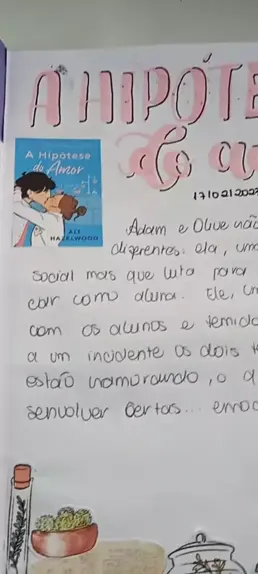 A HIPÓTE
do a
A Hipótese
do Amor
ALI
HAZELWOOD
17/02/202
Adam e Olive não
diferentes: ela, um
social mas que luta para
como aluna. Ele, um
com os alunos e temido
a um incidente os dois
estão namorando, o
senvolver certas... emoç